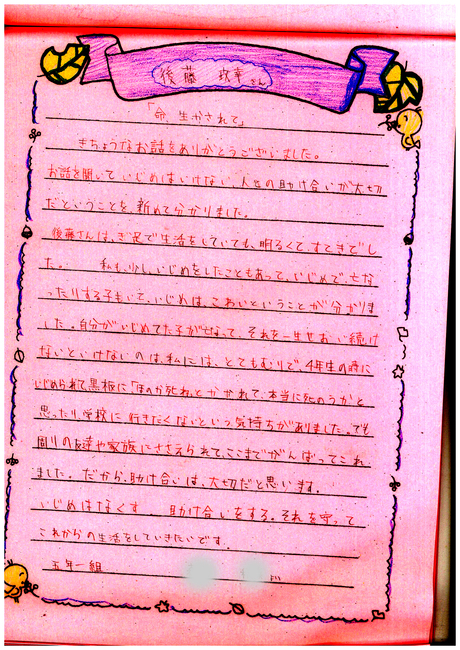 後藤 牧幸さん
「命、生かされて」
きちょうなお話をありがとうございました。
お話を聞いて、いじめはいけない、人との助け合いが大切
だということを、新めて分かりました。
後藤さんは、ぎ足で生活をしていても、明るくて、すてきでし
た。 私も、少し、いじめをしたこともあって、いじめで、亡な
ったりする子もいて、いじめは、こわいということが分かりま
した。自分がいじめてた子が亡なって、それを一生せおい続け
ないといけないのは、私には、とてもむりで、4年生の時に
いじめられて黒板に「 死ね」とかかれて、本当に死のうかと
思ったり、学校に、行きたくないという気持ちがありました。でも
周りの友達や家族にささえられて、ここまでがんばってこれ
ました。だから、助け合いは、大切だと思います。
いじめはなくす 助け合いをする。それを守って
これからの生活をしていきたいです。
五年一組